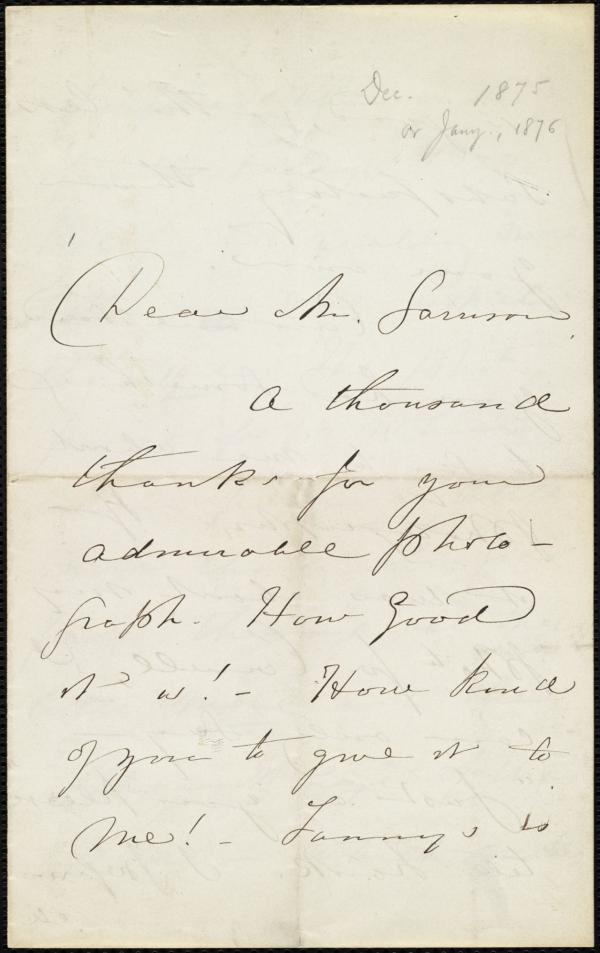 Dec. 1875
or Jany., 1876
Dear Mr. Garrison,
A thousand
thanks for your
admirable photo-
graph. How Good
it is! - How kind
of you to give it to
me! - Fanny's is